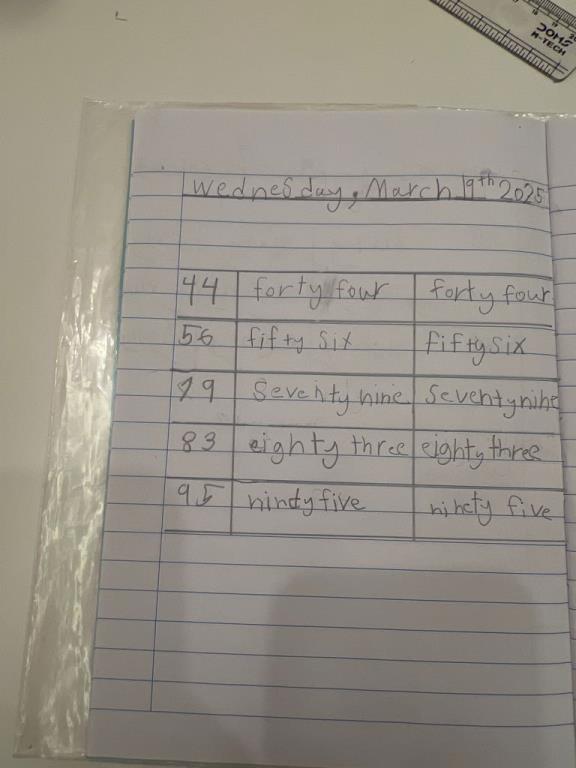 DOMS
M-TECH
Wednesday, March 19th 2025
44 forty four forty four
56 fifty six fifty six
79 Seventy nine Seventy nine
83 eighty three eighty three
95 nindy five ninety five